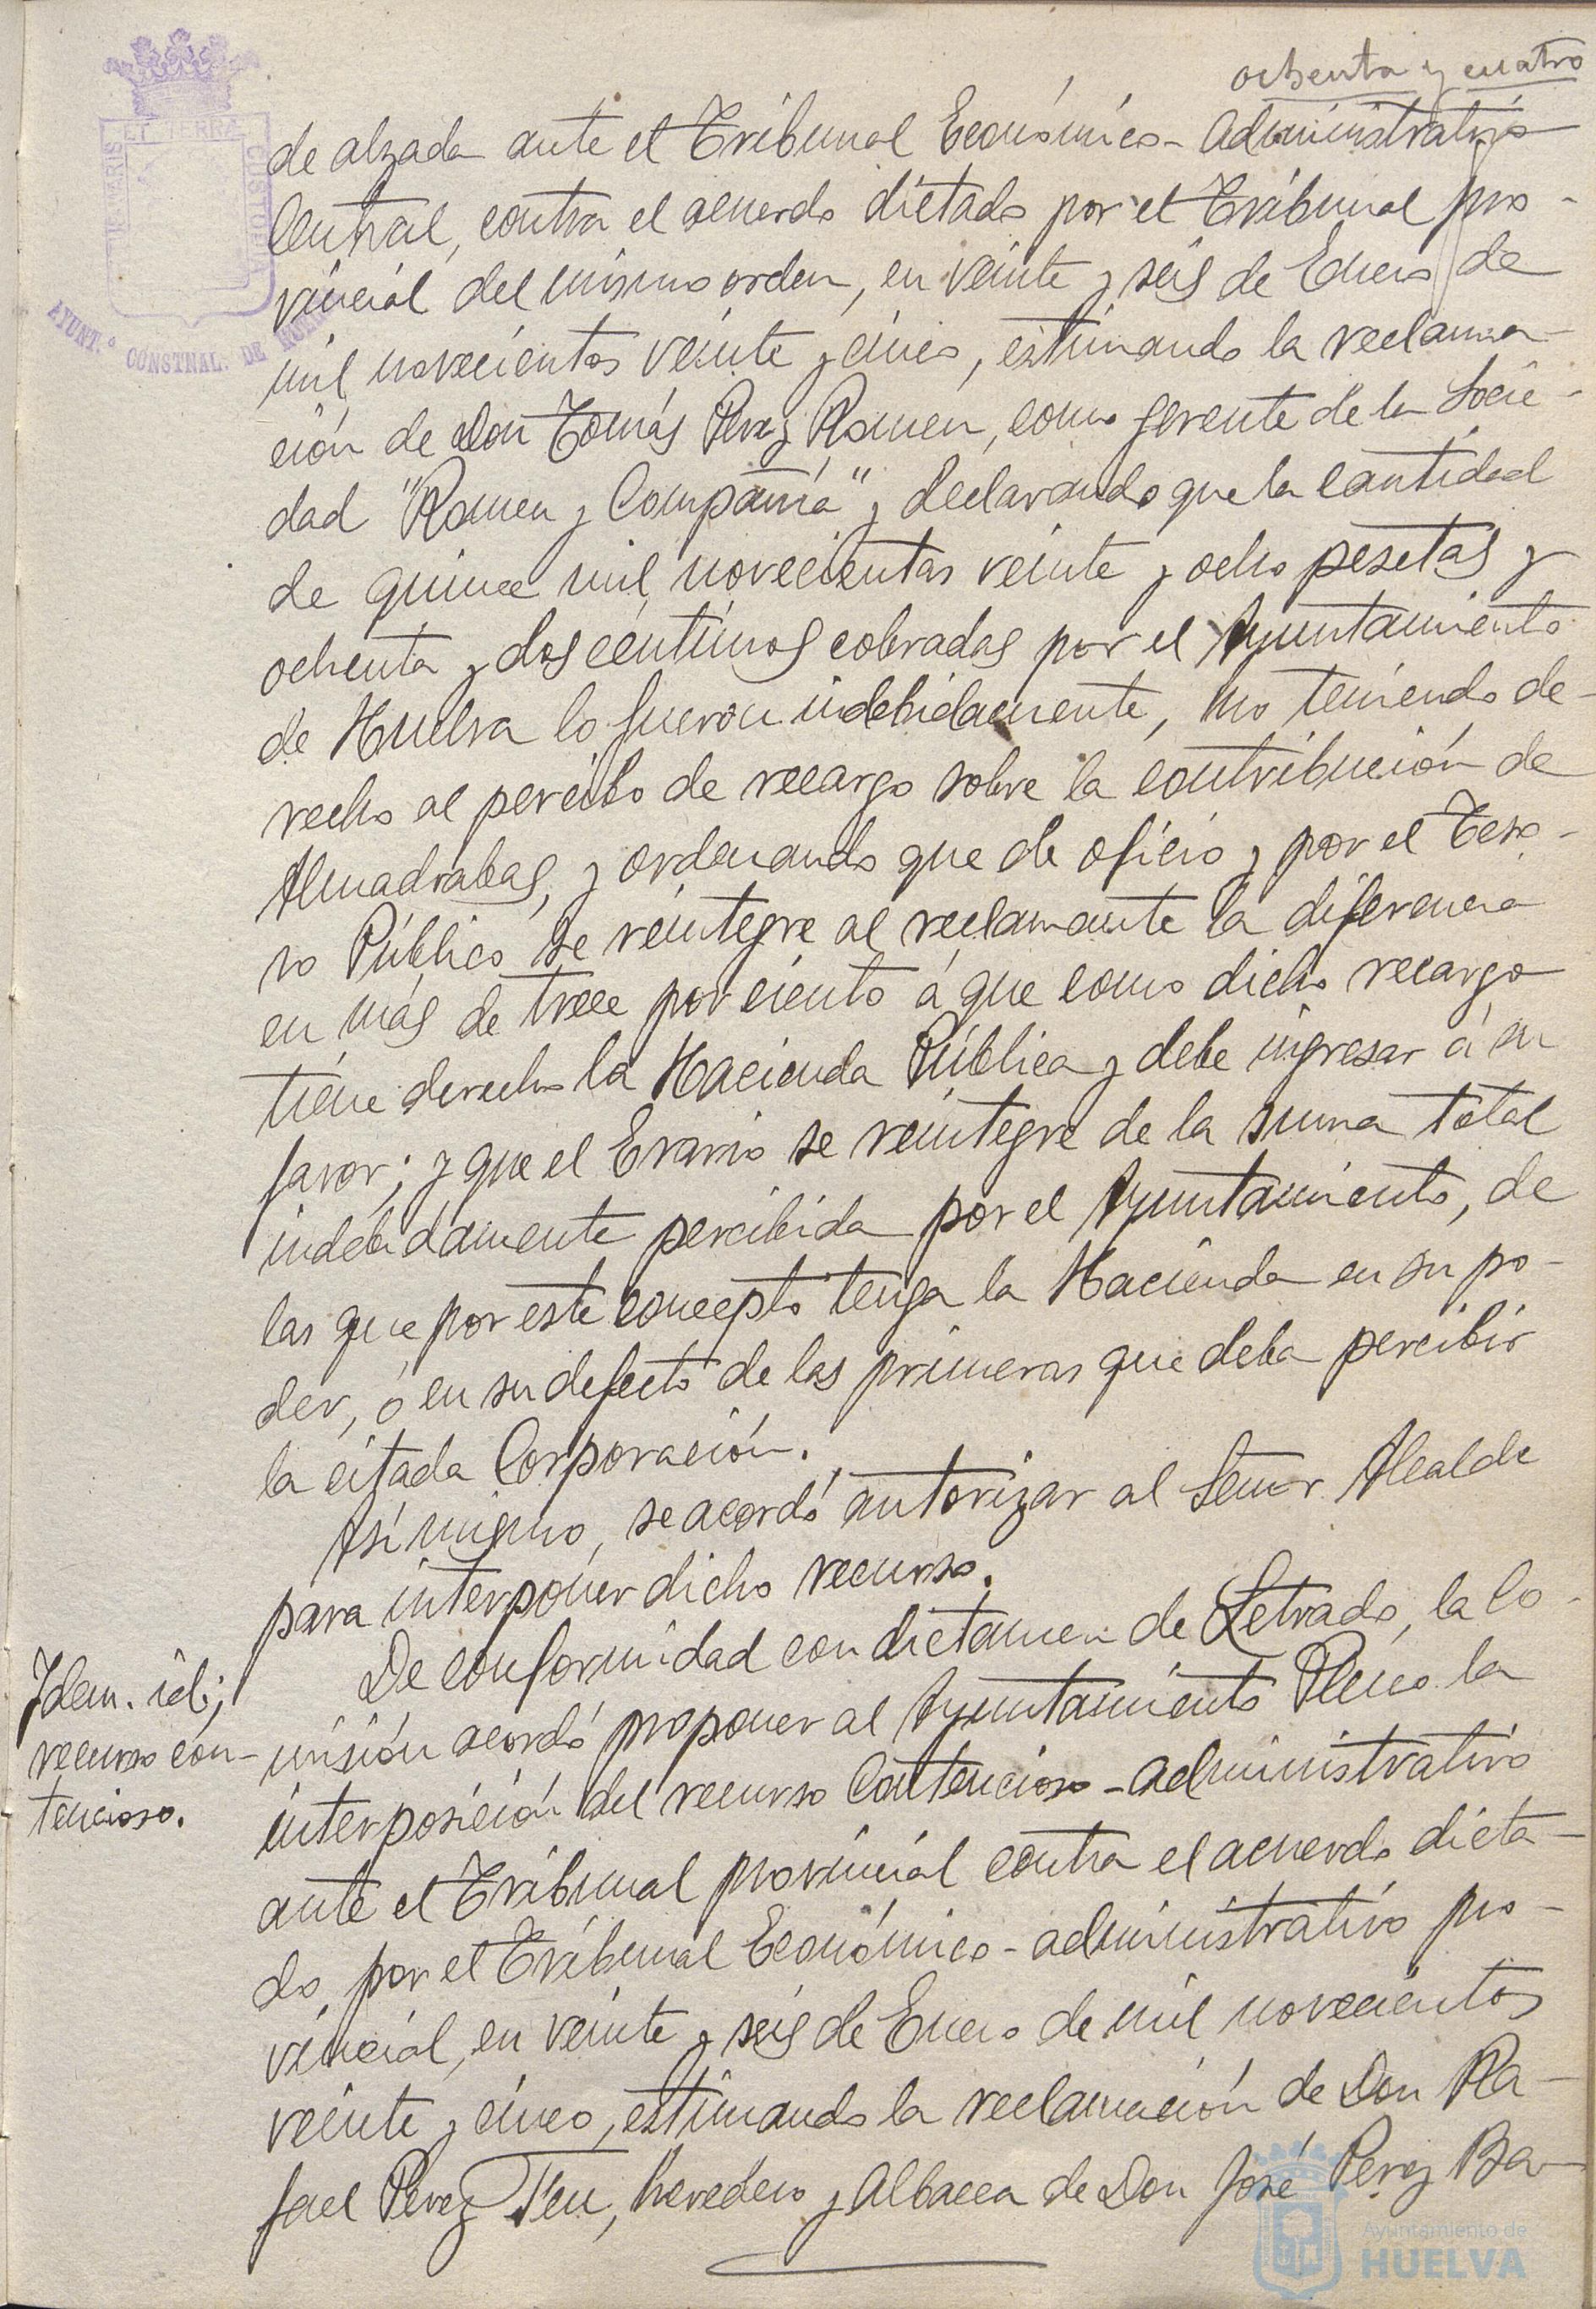 ochenta y cuatro
PORTUS MARIS ET TERRÆ CUSTODIA
AYUNT.º CONSTNAL. DE HUELVA
de alzada ante el Tribunal Económico-Administrativo
Central, contra el acuerdo dictado por el Tribunal pro-
vincial del mismo orden, en veinte y seis de Enero de
mil novecientos veinte y cinco, estimando la reclama-
ción de Don Tomás Perez Romeu, como gerente de la Socie-
dad "Romeu y Compañía" y declarando que la cantidad
de quince mil novecientas veinte y ocho pesetas y
ochenta y dos céntimos cobradas por el Ayuntamiento
de Huelva lo fueron indebidamente, no teniendo de-
recho al percibo de recargo sobre la contribución de
Almadrabas, y ordenando que de oficio y por el Teso-
ro Público se reintegre al reclamante la diferencia
en más de trece por ciento á que como dicho recargo
tiene derecho la Hacienda Pública y debe ingresar á su
favor; y que el Erario se reintegre de la suma total
indebidamente percibida por el Ayuntamiento, de
las que por este concepto tenga la Hacienda en su po-
der, ó en su defecto de las primeras que deba percibir
la citada Corporación.
Así mismo, se acordó autorizar al Señor Alcalde
para interponer dicho recurso.
Idem. id;
recurso con-
tencioso.
De conformidad con dictamen de Letrado, la Co-
misión acordó proponer al Ayuntamiento Pleno la
interposición del recurso Contencioso-administrativo
ante el Tribunal provincial contra el acuerdo dicta-
do por el Tribunal Económico-administrativo pro-
vincial, en veinte y seis de Enero de mil novecientos
veinte y cinco, estimando la reclamación de Don Ra-
fael Perez Feu, heredero y Albacea de Don José Perez Ba-
Ayuntamiento de
HUELVA